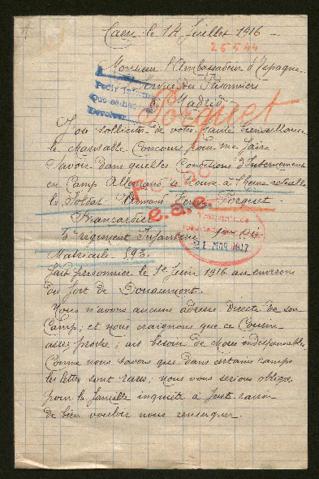 Caen le 14 Juillet 1916
26544
Monsieur l'Ambassadeur d'Espagne
Service des Prisonniers
à Madrid
Forguet
Je sollicite de votre haute bienveillance
le charitable Concours pour me faire
savoir dans quelles Conditions d'Internement
en Camp Allemand se trouve à l'heure actuelle
le Soldat Forguet
Brancardier
5e régiment Infanterie
Matricule 593
fait prisonnier le 1er Juin 1916 aux environs
du fort de Douaumont.
Nous n'avons aucune adresse directe de son
Camp; et nous craignons que ce Cousin
assez proche, ait besoin de choses indispensables
Comme nous savons que dans certains camps
les lettres sont rares; nous vous serions obligés
pour la famille inquiète à juste raison
de bien vouloir nous renseigner.